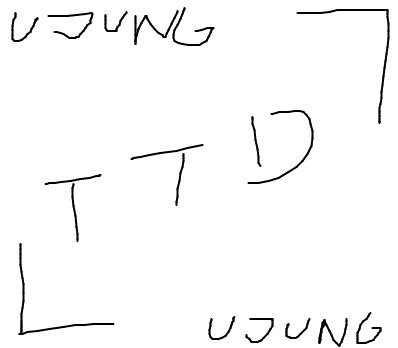 UJUNG
TTD
UJUNG